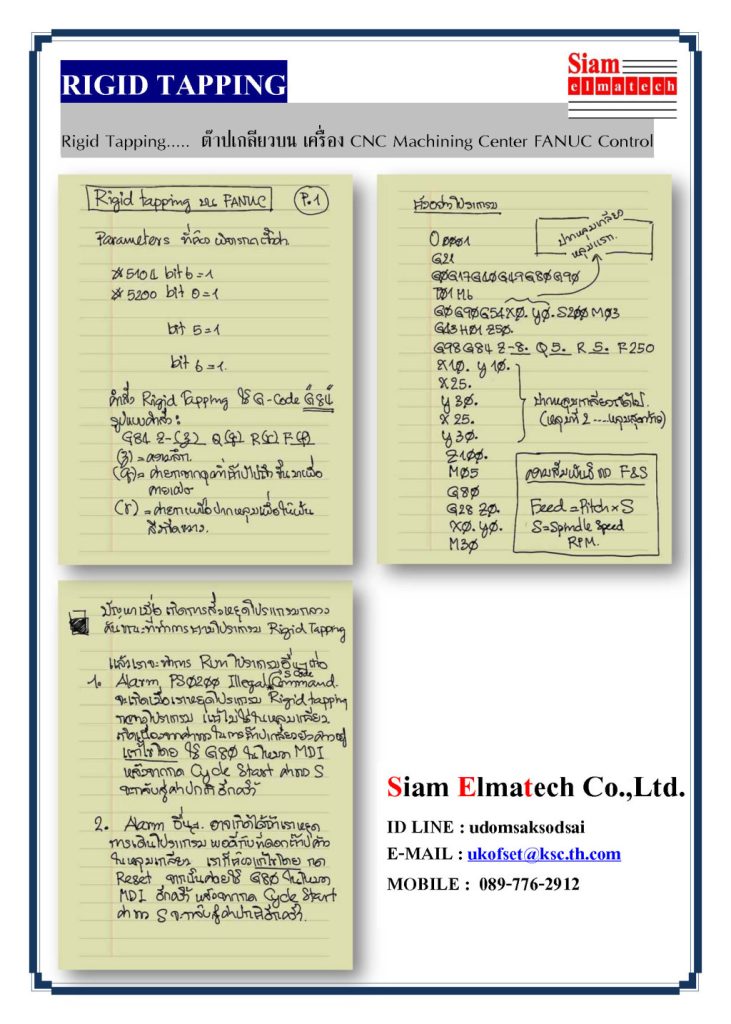 RIGID TAPPING
Siam
elmatech
Rigid Tapping..... ต๊าปเกลียวบน เครื่อง CNC Machining Center FANUC Control
Rigid tapping บน FANUC P.1
Parameters ที่ต้อง
※ 5104 bit 6 = 1
※ 5200 bit 0 = 1
bit 5 = 1
bit 6 = 1.
คำสั่ง Rigid Tapping ใช้ G-Code G84
รูปแบบคำสั่ง:
G84 Z-(z) Q(q) R(r) F(f)
(z) = ความลึก
(q) =
(r) =
ตัวอย่างโปรแกรม
O0001
G21
G0G17G40G49G80G90
T01 M6
G0G90G54X0. Y0. S200 M03
G43 H01 Z50.
G98 G84 Z-8. Q5. R5. F250
X10. Y10.
X25.
Y30.
X25.
Y30.
Z100.
M05
G80
G28 Z0.
X0. Y0.
M30
ปากหลุมเกลียว
หลุมแรก.
ปากหลุมเกลียวถัดไป.
(หลุมที่ 2 ....หลุมสุดท้าย)
ความสัมพันธ์ของ F&S
Feed = Pitch x S
S = Spindle Speed
RPM.
ปัญหาเมื่อ เกิดการสั่งหยุดโปรแกรมกลาง
คันขณะที่ทำการ โปรแกรม Rigid Tapping
แล้วเราจะทำการ Run โปรแกรมอื่นๆต่อ
1. Alarm PS0200 Illegal S Code Command.
จะเกิดเมื่อเราหยุดโปรแกรม Rigid tapping
กลางโปรแกรม แต่ไม่ใช่ในหลุมเกลียว
แก้ไขโดย ใช้ G80 ในโหมด MDI
หลังจากกด Cycle Start ค่าของ S
จะกลับสู่ค่าปกติอีกครั้ง
2. Alarm อื่นๆ. อาจเกิดได้ถ้าเราหยุด
การเดินโปรแกรม พอดีกับที่ดอกต๊าปค้าง
ในหลุมเกลียว เราก็ต้องแก้ไขโดย กด
Reset จากนั้นค่อยใช้ G80 ในโหมด
MDI อีกครั้ง หลังจากกด Cycle Start
ค่าของ S จะกลับสู่ค่าปกติอีกครั้ง.
Siam Elmatech Co.,Ltd.
ID LINE : udomsaksodsai
E-MAIL : ukofset@ksc.th.com
MOBILE : 089-776-2912